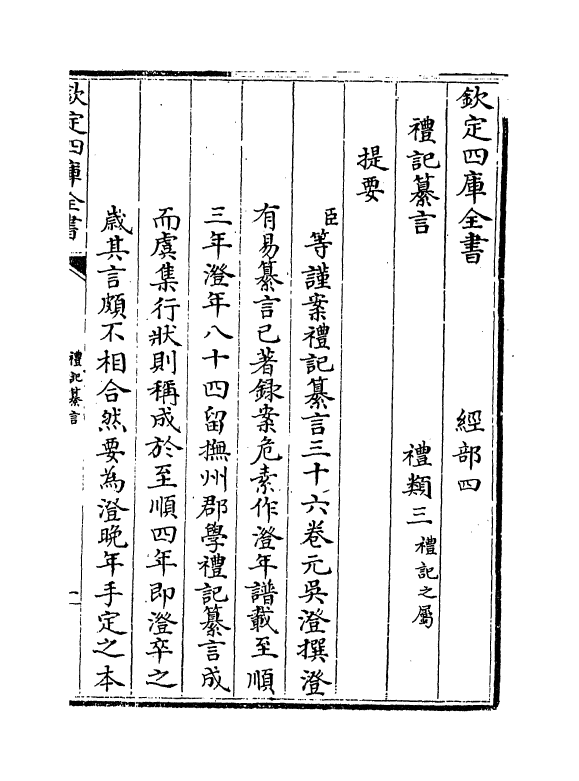 欽定四庫全書　經部四
禮記纂言　禮類三禮記之屬
提要
臣等謹案禮記纂言三十六卷元吳澄撰澄
有易纂言已著録案危素作澄年譜載至順
三年澄年八十四留撫州郡學禮記纂言成
而虞集行狀則稱成於至順四年即澄卒之
歲其言頗不相合然要為澄晚年手定之本
欽定四庫全書
禮記纂言